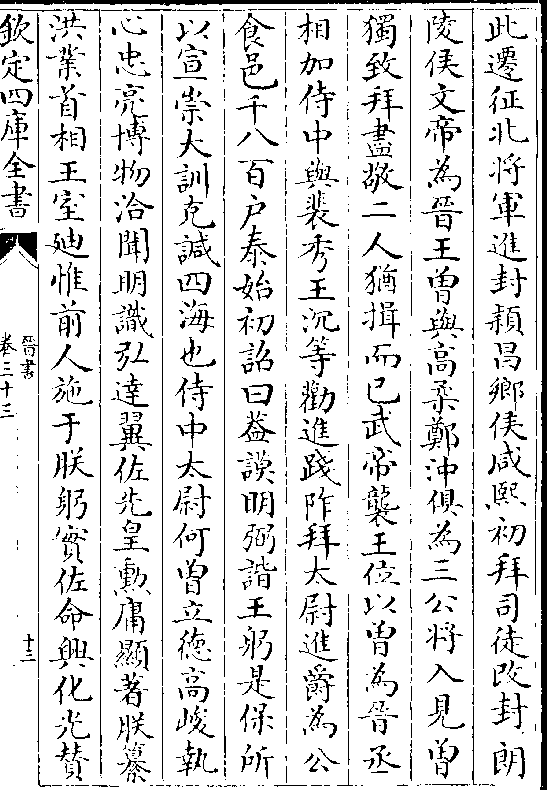 此遷征北將軍進封潁昌鄉侯咸熙初拜司徒改封朗
陵侯文帝為晉王曾與高柔鄭沖俱為三公將入見曾
獨致拜盡敬二人猶揖而已武帝襲王位以曾為晉丞
相加侍中與裴秀王沉等勸進踐阼拜太尉進爵為公
食邑千八百户泰始初詔曰葢謨明弼諧王躬是保所
以宣崇大訓克諴四海也侍中太尉何曾立德高峻執
心忠亮博物洽聞明識弘達翼佐先皇勳庸顯著朕纂
洪業首相王室廸惟前人施于朕躬實佐命興化光贊
欽定四庫全書
晉書
卷三十三
十三